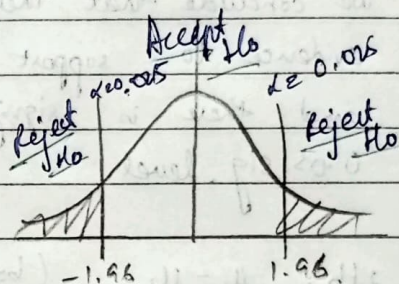 Accept
Ho
α=0.025
α= 0.025
Reject
Ho
Reject
Ho
-1.96
1.96